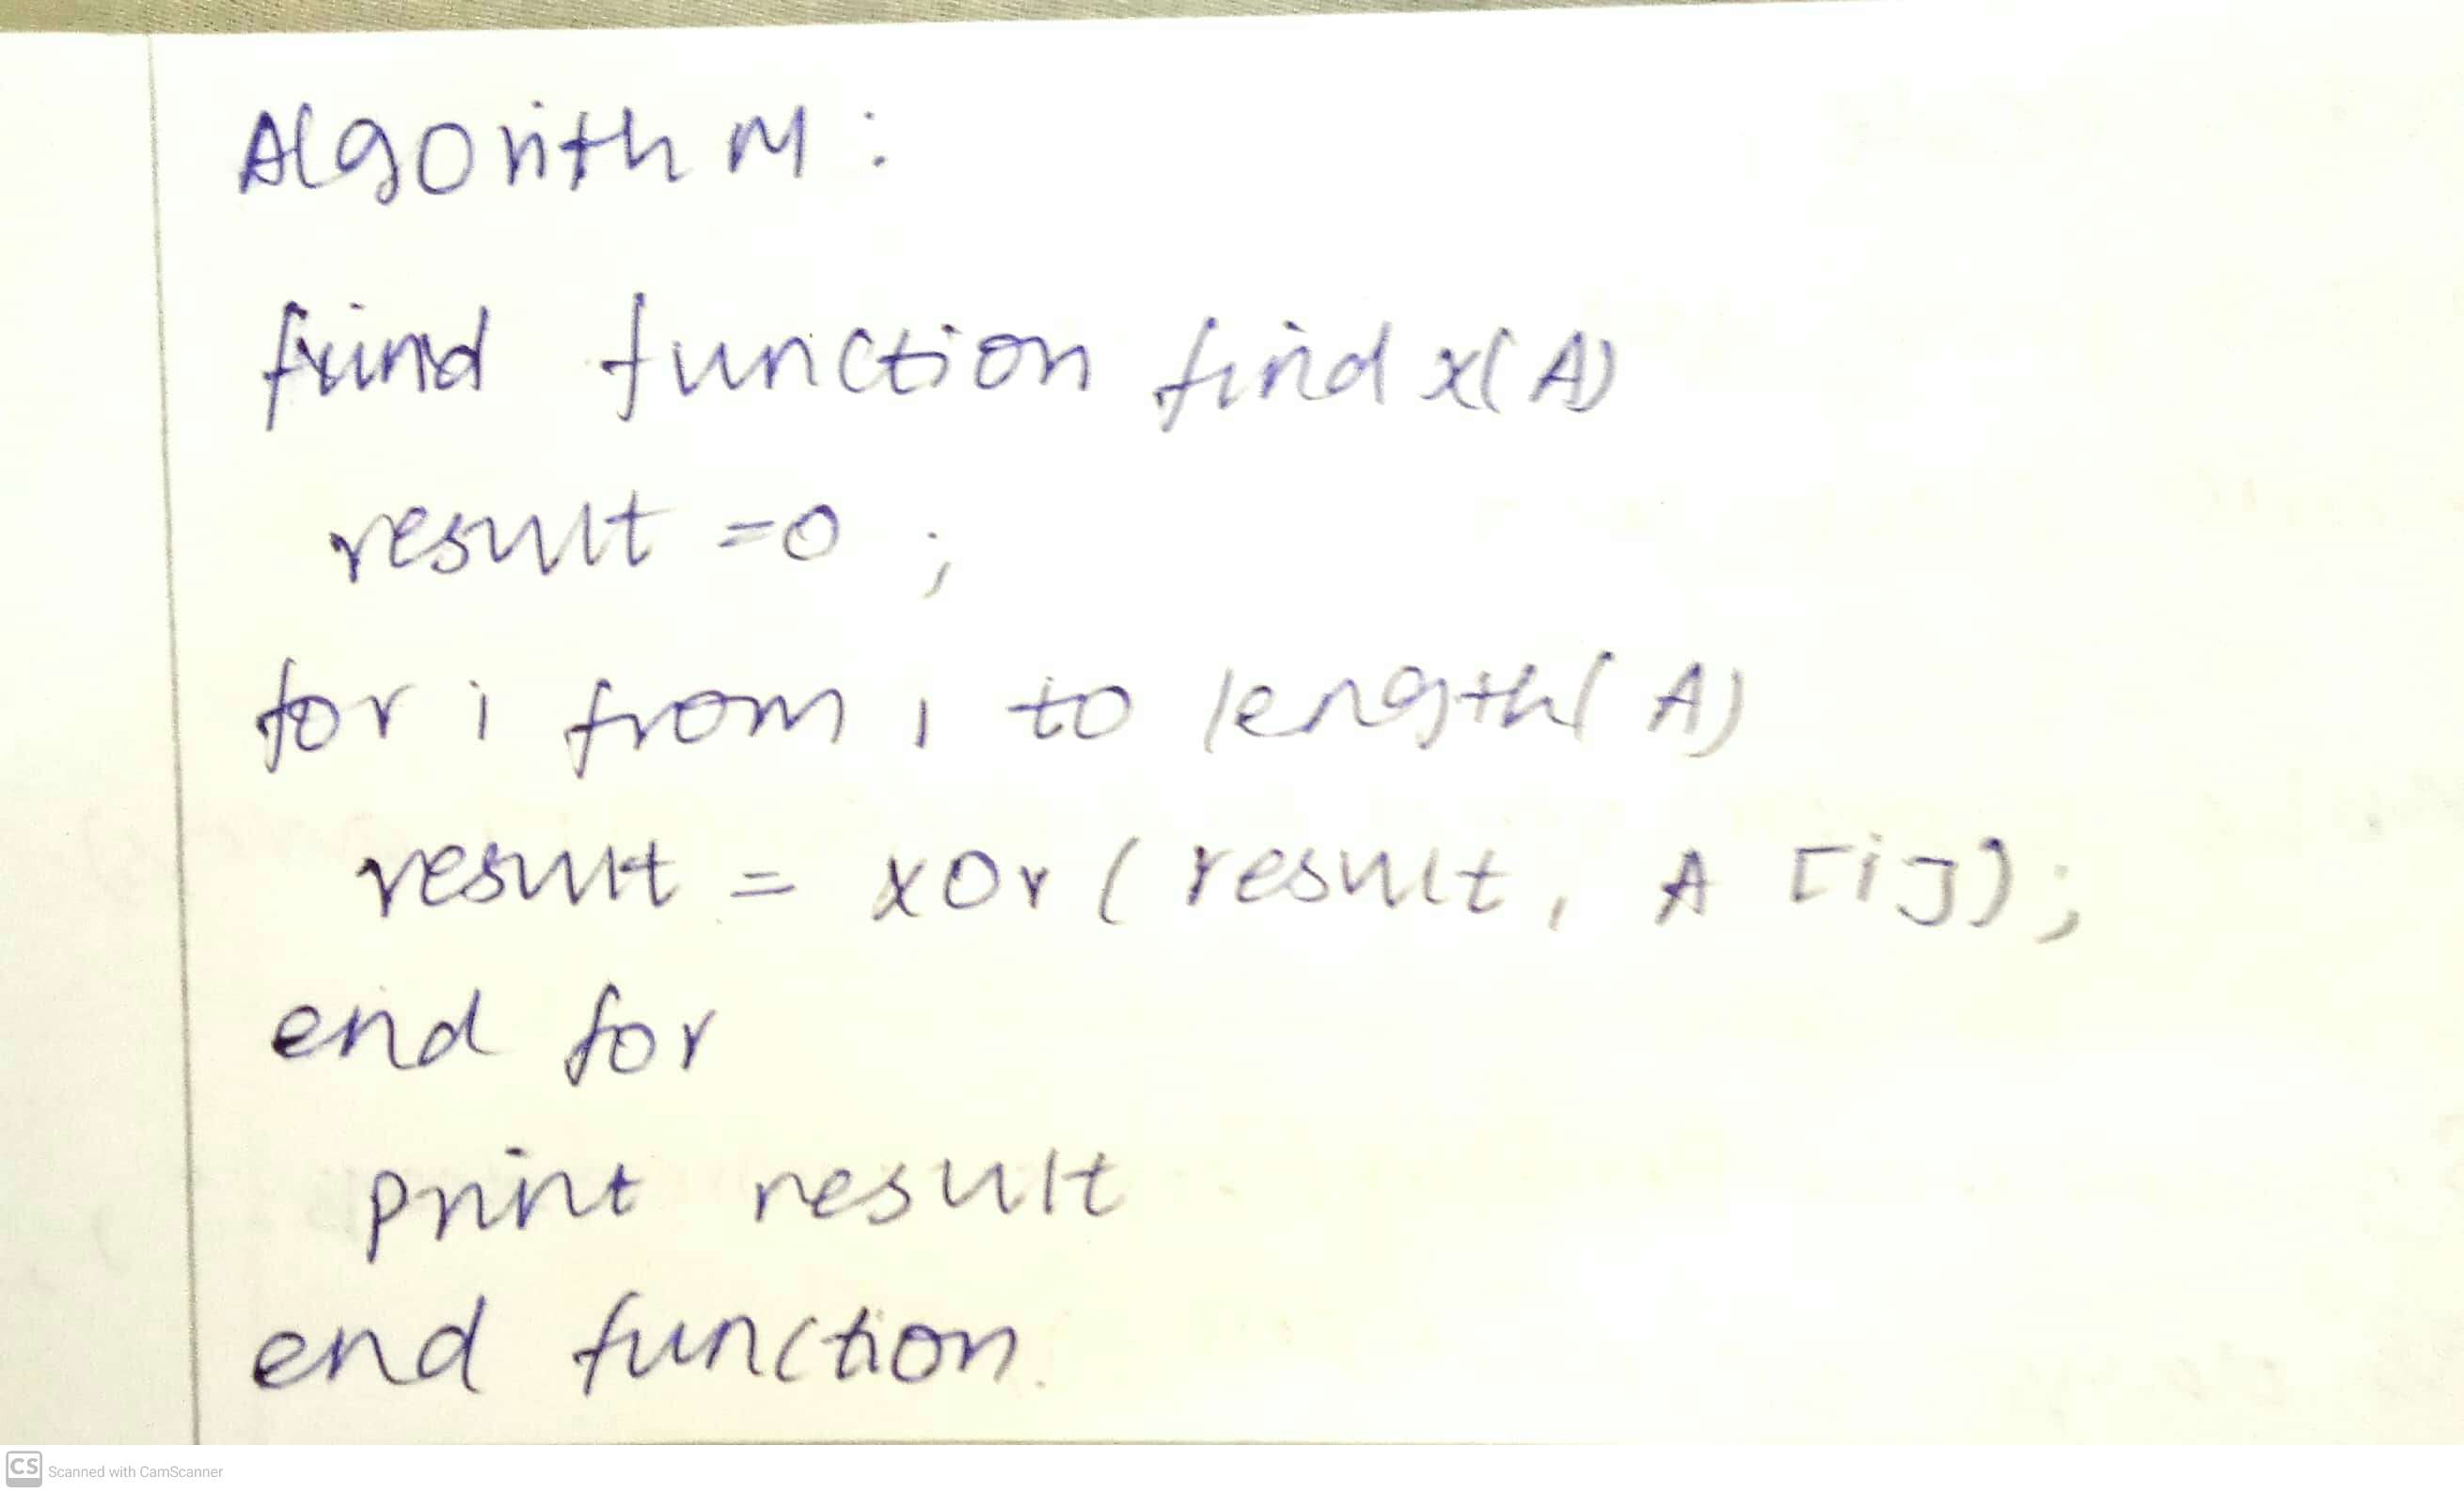 Algorithm:
find function find x(A)
result =0 ;
for i from 1 to length(A)
result = xor ( result, A [i]);
end for
print result
end function.
CS Scanned with CamScanner